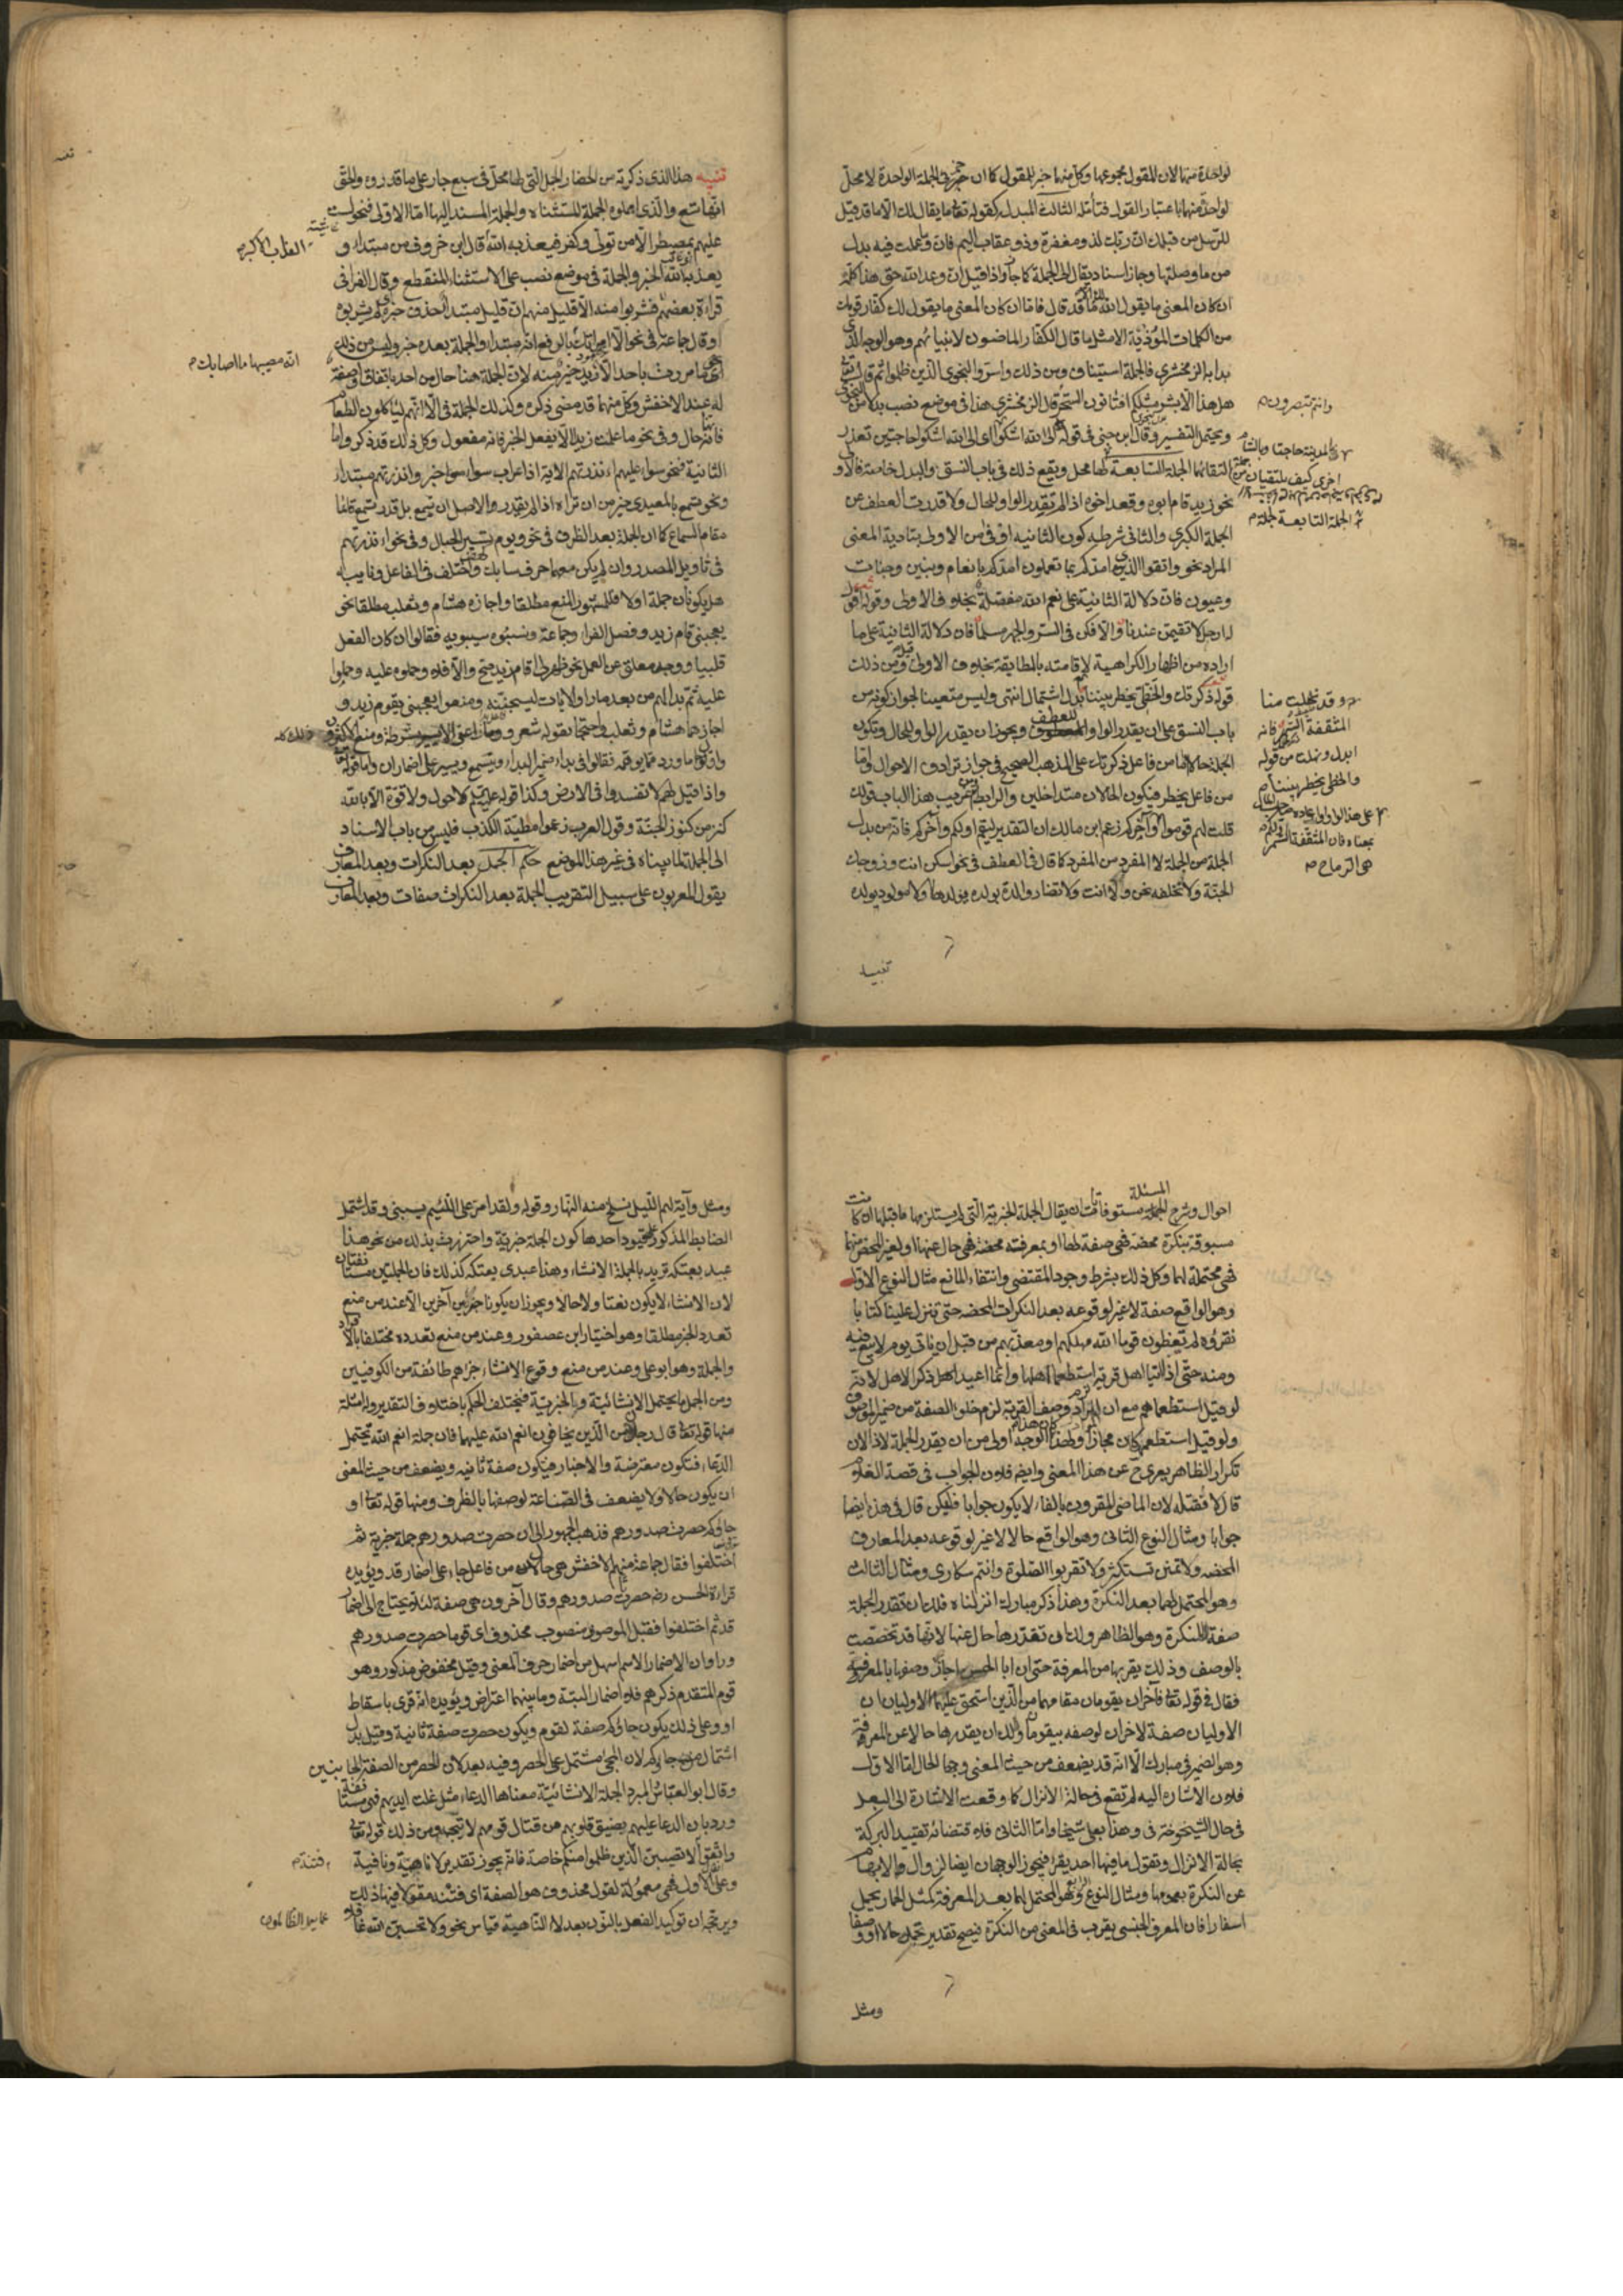 لواحدة منها لان المقول مجموعها وكل منها جزء للمقول كما ان جزئى الجملة الواحدة لا محل
لواحد منهما باعتبار القول فتأمله الثالث المبدل كقوله تعا ما يقال لك الا ما قد قيل
للرسل من قبلك ان ربك لذو مغفرة وذو عقاب اليم فان وما عملت فيه بدل
من ما وصلتها وجاز اسناد يقال الى الجملة كما جاز واذا قيل ان وعد الله حق هذا كله
ان كان المعنى ما يقول الله لك الا ما قد قال فاما ان كان المعنى ما يقول لك كفار قومك
من الكلمات المؤذية الا مثل ما قال الكفار الماضون لانبيائهم وهو الوجه الذى
بدا به الزمخشرى فالجملة استيناف ومن ذلك واسروا النجوى الذين ظلموا ثم قال تعا
هل هذا الا بشر مثلكم افتأتون السحر قال الزمخشرى هذا فى موضع نصب بدلا من النجوى
وانتم تبصرون
ويحتمل التفسير وقال ابن جنى فى قوله الى الله اشكو اى الى الله اشكو حاجتين تعذر
بالمدينة حاجتا وبالشام
اخرى كيف يلتقيان
التقائهما الجملة السابعة لها محل ويقع ذلك فى بابى النسق والبدل خاصة فالاول
الجملة التابعة لجملة
نحو زيد قام ابوه وقعد اخوه اذا لم يقدر الواو للحال ولا قدرت العطف على
الجملة الكبرى والثانى شرطه كون الثانية اوفى من الاولى بتادية المعنى
المراد نحو واتقوا الذى امدكم بما تعلمون امدكم بانعام وبنين وجنات
وعيون فان دلالة الثانية على نعم الله مفصلة بخلاف الاولى وقوله اقول
له ارحل لا تقيمن عندنا والا فكن فى السر والجهر مسلما فان دلالة الثانية على ما
اراده من اظهار الكراهية لاقامته بالمطابقة بخلاف الاولى قيل ومن ذلك
قوله ذكرتك والخطى يخطر بيننا بدل اشتمال انتهى وليس متعينا لجواز كونه من
وقد نهلت منا
المثقفة السمر فانه
ابدل ونهلت من قوله
والخطى يخطر بيننا
باب النسق على ان يقدر الواو للعطف ويجوز ان يقدر الواو للحال وتكون
الجملة حالا اما من فاعل ذكرتك على المذهب الصحيح فى جواز ترادف الاحوال واما
من فاعل يخطر فيكون الحالان متداخلين والرابط من غريب هذا الباب قولك
بمعناه فان المثقفة السمر
هى الرماح
قلت لهم قوموا اولكم وآخركم زعم ابن مالك ان التقدير ليقم اولكم وآخركم فانه من بدل
الجملة من الجملة لا المفرد من المفرد كما قال فى العطف فى نحو اسكن انت وزوجك
الجنة ولا نخلفه نحن ولا انت ولا تضار والدة بولدها ولا مولود بولده
تنبيه
تنبيه هذا الذى ذكرته من انحصار الجمل التى لها محل فى سبع جار على ما قدروه والحق
انها تسع والذى اهملوه الجملة المستثناه والجملة المسند اليها اما الاولى فنحو لست
عليهم بمصيطر الا من تولى وكفر فيعذبه الله قال ابن خروف من مبتداء و
العذاب الاكبر
يعذبه الله الخبر والجملة فى موضع نصب على الاستثناء المنقطع وقال الفرا فى
قراءة بعضهم فشربوا منه الا قليل منهم ان قليل مبتدا حذف خبره اى لم يشربوه
وقال جماعة فى نحو الا امراتك بالرفع انه مبتداء والجملة بعده خبر وليس من ذلك
انه مصيبها ما اصابهم
نحو ما مررت باحد الا زيد خير منه لان الجملة هنا حال من احد باتفاق او صفة
له عند الاخفش وكل منهما قد مضى ذكره وكذلك الجملة فى الا انهم لياكلون الطعام
فانها حال وفى نحو ما علمت زيدا الا يفعل الخير فانه مفعول وكل ذلك قد ذكر واما
الثانية فنحو سواء عليهم ءانذرتهم الاية اذا اعرب سواء خبر وانذرتهم مبتداء
ونحو تسمع بالمعيدى خير من ان تراه اذا لم يقدر والاصل ان تسمع بل قدر تسمع قائما
مقام السماع كما ان الجملة بعد الظرف فى نحو ويوم نسير الجبال وفى نحو ءانذرتهم
فى تاويل المصدر وان لم يكن معهما حرف سابك واختلف فى الفاعل ونايبه
هل يكونان جملة اولا فالمشهور المنع مطلقا واجازه هشام وثعلب مطلقا نحو
يعجبنى قام زيد وفصل الفراء وجماعة ونسبوه سيبويه فقالوا ان كان الفعل
قلبيا ووجد معلق عن العمل نحو ظهر لى اقام زيد صح والا فلا وحملوه عليه وحملوا
عليه ثم بدا لهم من بعد ما راوا الايات ليسجننه ومنعوا يعجبنى يقوم زيد و
اجازهما هشام وثعلب واحتجا بقوله شعر وما راعنى الا يسير بشرطة ومنع الاكثرون
ذلك كله
واولوا ما ورد مما يوهمه فقالوا فى بدا ضمير البداء وتسمع ويسير على اضمار ان واما قوله تعا
واذا قيل لهم لا تفسدوا فى الارض وكذا قوله عليه السلام لا حول ولا قوة الا بالله
كنز من كنوز الجنة وقول العرب زعموا مطية الكذب فليس من باب الاسناد
الى الجملة لما بيناه فى غير هذا الموضع حكم الجمل بعد النكرات وبعد المعارف
يقول المعربون على سبيل التقريب الجملة بعد النكرات صفات وبعد المعارف
احوال وشرح المسئلة مستوفاة ان يقال الجملة الخبرية التى لم يستلزمها ما قبلها ان كانت
مسبوقة بنكرة محضة فهى صفة لها او بمعرفته محضة فهى حال عنها او بغير المحض منهما
فهى محتملة لهما وكل ذلك بشرط وجود المقتضى وانتفاء المانع مثال النوع الاول
وهو الواقع صفة لا غير لوقوعه بعد النكرات المحضه حتى تنزل علينا كتابا
نقرؤه لم تعظون قوما الله مهلكهم او معذبهم من قبل ان ياتى يوم لا بيع فيه
ومنه حتى اذا اتيا اهل قرية استطعما اهلها وانما اعيد اهل ذكر الاهل لانه
لو قيل استطعماهم مع ان المراد وصف القرية لزم خلو الصفة من ضمير الموصوف
ولو قيل استطعماها كان مجازا ولهذا كان هذا الوجه اولى من ان يقدر الجملة لاذا لان
تكرار الظاهر يعرى ح عن هذا المعنى وايضا فلان الجواب فى قصة الغلام
قال لا فقتله لان الماضى المقرون بالفاء لا يكون جوابا فليكن قال فى هذه ايضا
جوابا ومثال النوع الثانى وهو الواقع حالا لا غير لوقوعه بعد المعارف
المحضه ولا تمنن تستكثر ولا تقربوا الصلوة وانتم سكارى ومثال الثالث
وهو المحتمل لهما بعد النكرة وهذا ذكر مبارك انزلناه فلك ان تقدر الجملة
صفة للنكرة وهو الظاهر ولك ان تقدرها حال عنها لانها قد تخصصت
بالوصف وذلك يقربها من المعرفة حتى ان ابا الحسن اجاز وصفها بالمعرفة
فقال فى قوله تعا فآخران يقومان مقامهما من الذين استحق عليهم الاوليان ان
الاوليان صفة لاخران لوصفه بيقومان ولك ان يقدرها حالا عن المعرفة
وهو الضمير فى مبارك الا انه قد يضعف من حيث المعنى وجها الحال اما الاول
فلان الاشارة اليه لم تقع فى حالة الانزال كما وقعت الاشارة الى البعل
فى حال الشيخوخة فى وهذا بعلى شيخا واما الثانى فلاقتضائه تقييد البركة
بحالة الانزال وتقول ما فيها احد يقرا فيجوز الوجهان ايضا لزوال الابهام
عن النكرة بعمومها ومثال النوع الرابع وهو المحتمل لهما بعد المعرفة كمثل الحمار يحمل
اسفارا فان المعرف الجنسى يقرب فى المعنى من النكرة فيصح تقدير يحمل حالا او وصفا
ومثل
ومثل وآية لهم الليل نسلخ منه النهار وقوله ولقد امر على اللئيم يسبنى وقد اشتمل
الضابط المذكور على قيود احدها كون الجملة خبرية واحترزت بذلك من نحو هذا
عبد بعتكه تريد بالجملة الانشاء وهذا عبدى بعتكه كذلك فان الجملتين مستانفتان
لان الانشاء لا يكون نعتا ولا حالا ويجوز ان يكونا خبرين آخرين الا عند من منع
تعدد الخبر مطلقا وهو اختيار ابن عصفور وعند من منع تعدده مختلفا بالافراد
والجملة وهو ابو على وعند من منع وقوع الانشاء خبرا وهم طائفة من الكوفيين
ومن الجمل ما يحتمل الانشائية والخبرية فيختلف الحكم باختلاف التقدير وله امثلة
منها قوله تعا قال رجلان من الذين يخافون انعم الله عليهما فان جملة انعم الله تحتمل
الدعاء فتكون معترضة والاخبار فيكون صفة ثانيه ويضعف من حيث المعنى
ان يكون حالا ولا يضعف فى الصناعة لوصفها بالظرف ومنها قوله تعا او
جاؤكم حصرت صدورهم فذهب الجمهور الى ان حصرت صدورهم جملة خبرية ثم
اختلفوا فقال جماعة منهم الاخفش هى حال من فاعل جاء على اضمار قد ويؤيده
قراءة الحسن رضى حصرت صدورهم وقال آخرون هى صفة لئلا يحتاج الى اضمار
قد ثم اختلفوا فقيل الموصوف منصوب محذوف اى قوما حصرت صدورهم
وراوا ان الاضمار الاسم اسهل من اضمار حرف المعنى وقيل مخفوض مذكور وهو
قوم المتقدم ذكرهم فلا اضمار البتة وما بينهما اعتراض ويؤيده انه قرى باسقاط
او وعلى ذلك يكون جاؤكم صفة لقوم ويكون حصرت صفة ثانية وقيل بدل
اشتمال من جاؤكم لان المجئ مشتمل على الحصر وفيه بعد لان الحصر من الصفة الجانبين
وقال ابو العباس المبرد الجملة الانشائية معناها الدعاء مثل غلت ايديهم فهى مستانفة
ورد بان الدعاء عليهم بضيق قلوبهم عن قتال قومهم لا يتجه ومن ذلك قوله تعا
واتقوا لا تصيبن الذين ظلموا منكم خاصة فانه يجوز تقدير لا ناهية ونافية
فتنة
وعلى الاول فهى معمولة لقول محذوف هو الصفة اى فتنة مقولا فيها ذلك
ويرجحه ان توكيد الفعل بالنون بعد لا الناهية قياس نحو ولا تحسبن الله غافلا
عما يعمل الظالمون